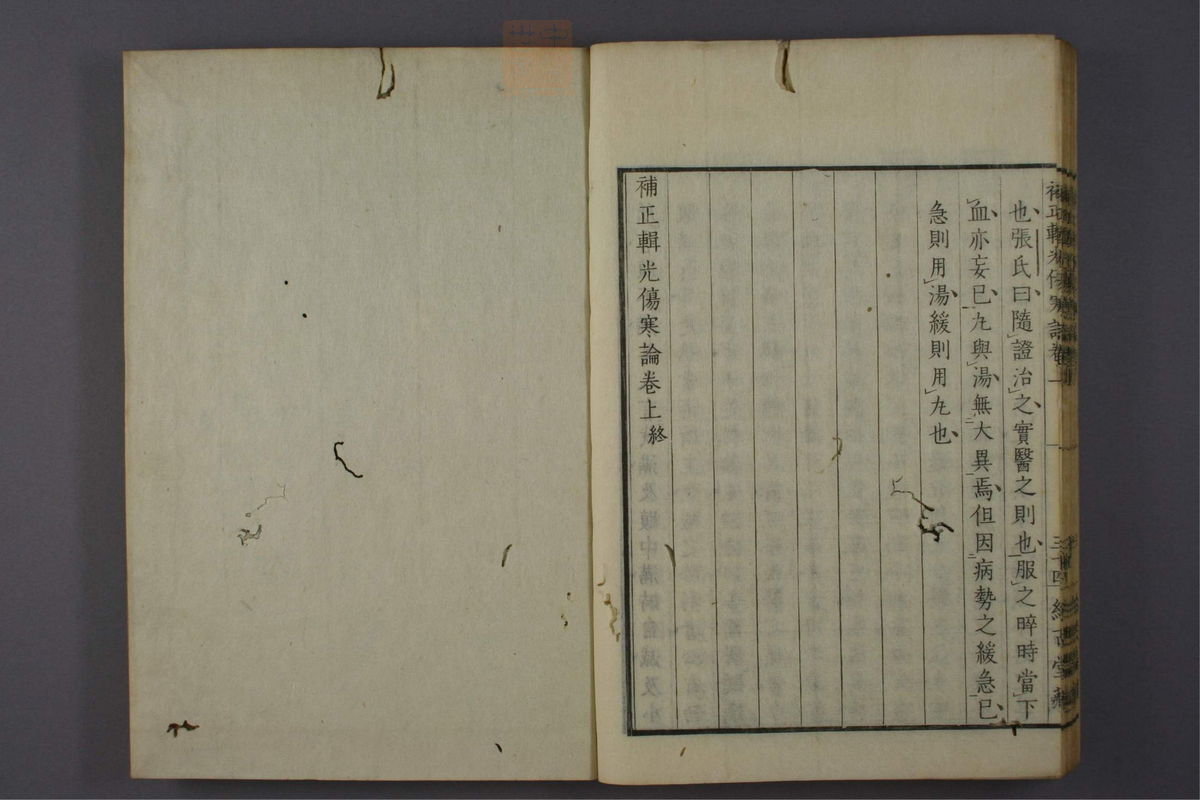 也張氏曰隨證治之實醫之則也服之晬時當下
血亦妄已丸與湯無大異焉但因病勢之緩急已
急則用湯緩則用丸也
補正輯光傷寒論卷上終